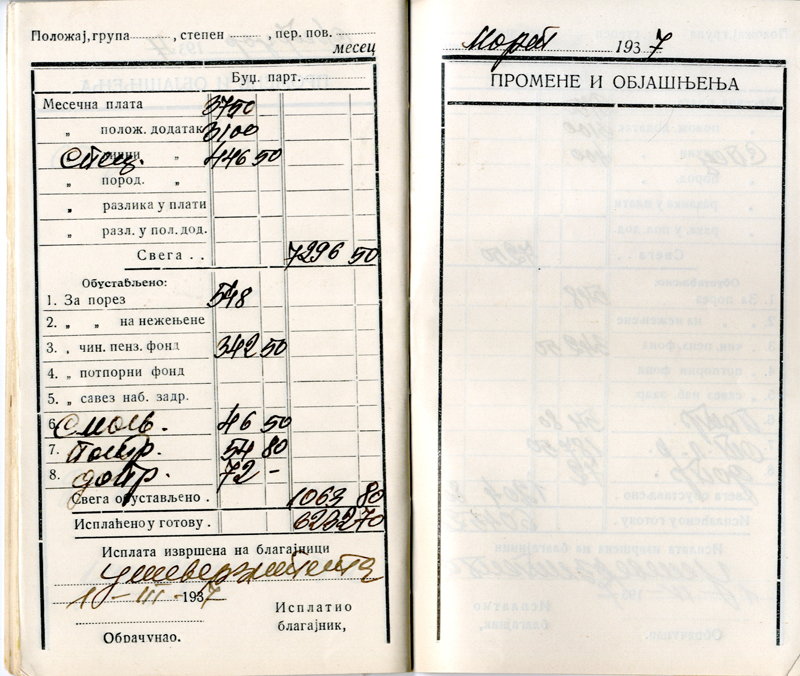 Положај, група , степен , пер. пов.
месец
Буџ. парт.
Месечна плата 3750
„ полож. додатак 3100
Спец. „ 446 50
„ пород. „
„ разлика у плати
„ разл. у пол. дод.
Свега . . 7296 50
Обустављено:
1. За порез 548
2. „ „ на нежењене
3. „ чин. пенз. фонд 342 50
4. „ потпорни фонд
5. „ савез наб. задр.
6. 46 50
7. 54 80
8. 72 -
Свега обустављено . 1063 80
Исплаћено у готову . 6232 70
Исплата извршена на благајници
универзитета
1 - III - 1937
Исплатио
благајник,
Обрачунао,
март 1937
ПРОМЕНЕ И ОБЈАШЊЕЊА